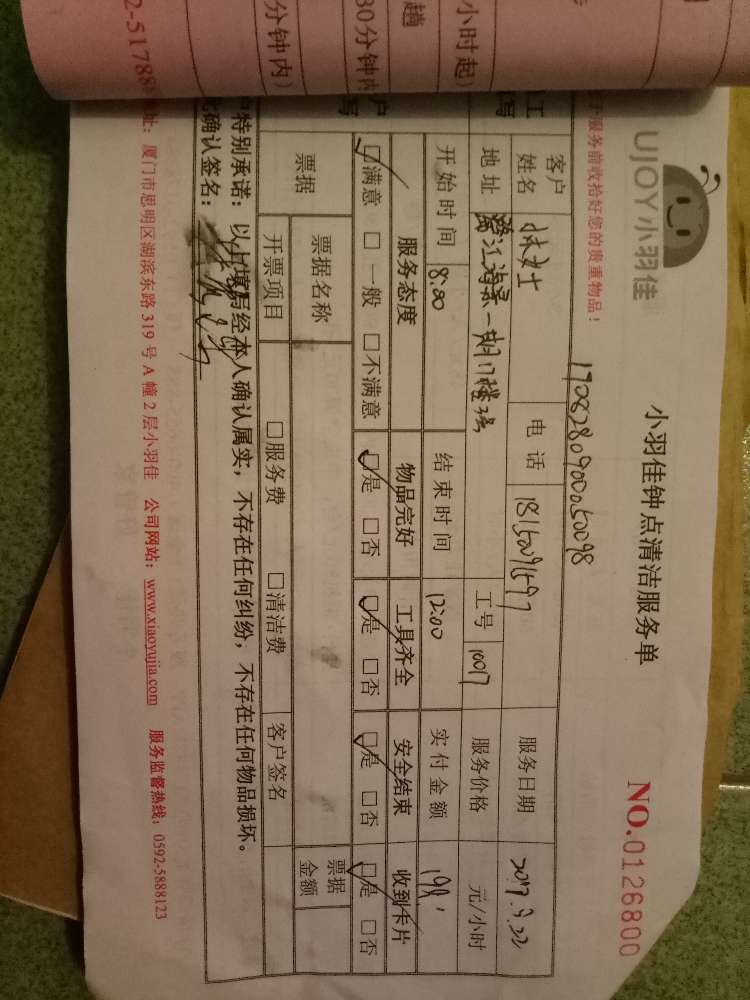 分钟内）
30分钟内
趟
小时起）
UJOY小羽佳
小羽佳钟点清洁服务单
NO.0126800
服务前收拾好您的贵重物品！
客户姓名 林女士 电话 服务日期
地址 工号 10017 服务价格 元/小时
开始时间 8:00 结束时间 12:00 实付金额
服务态度 物品完好 工具齐全 安全结束 收到卡片
☑满意 □一般 □不满意 ☑是 □否 ☑是 □否 ☑是 □否 ☑是 □否
票据 票据名称 票据金额
开票项目 □服务费 □清洁费 客户签名
特别承诺：以上填写经本人确认属实，不存在任何纠纷，不存在任何物品损坏。
确认签名：
址：厦门市思明区湖滨东路 319 号 A 幢 2 层小羽佳 公司网站：www.xiaoyujia.com 服务监督热线：0592-5888123